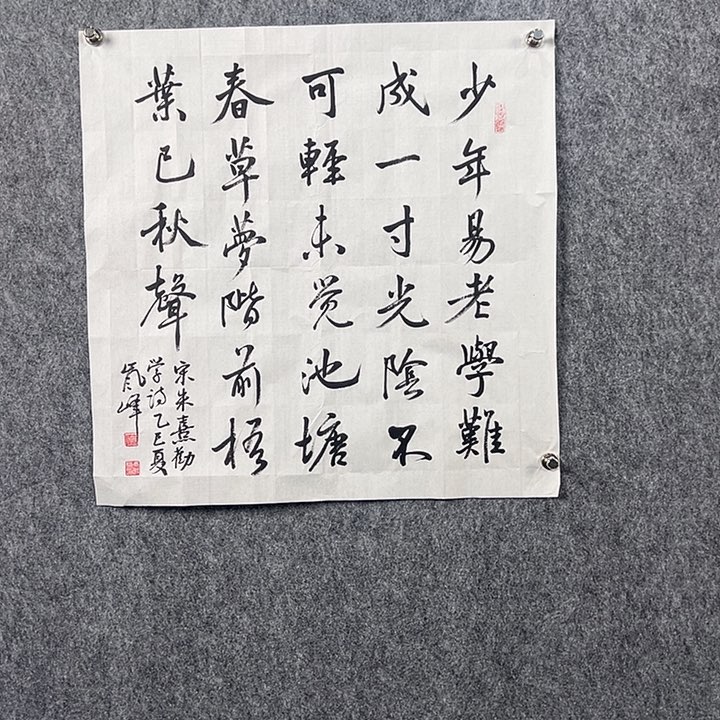 少年易老學難
成一寸光陰不
可輕未觉池塘
春草夢階前梧
葉已秋聲
宋朱熹勸
学诗乙巳夏
峰